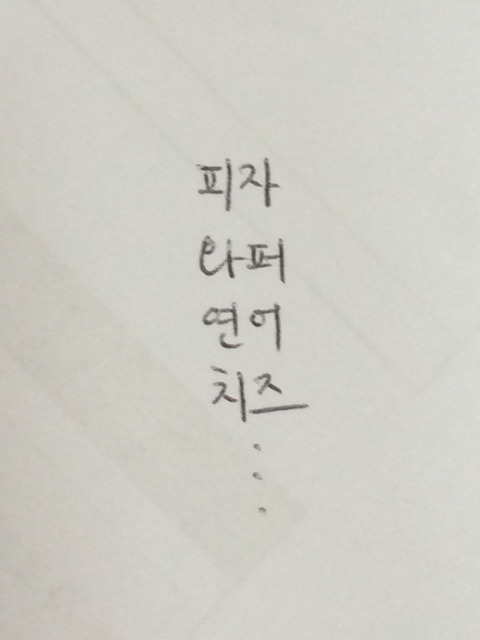 피자
와퍼
연어
치즈
⋮